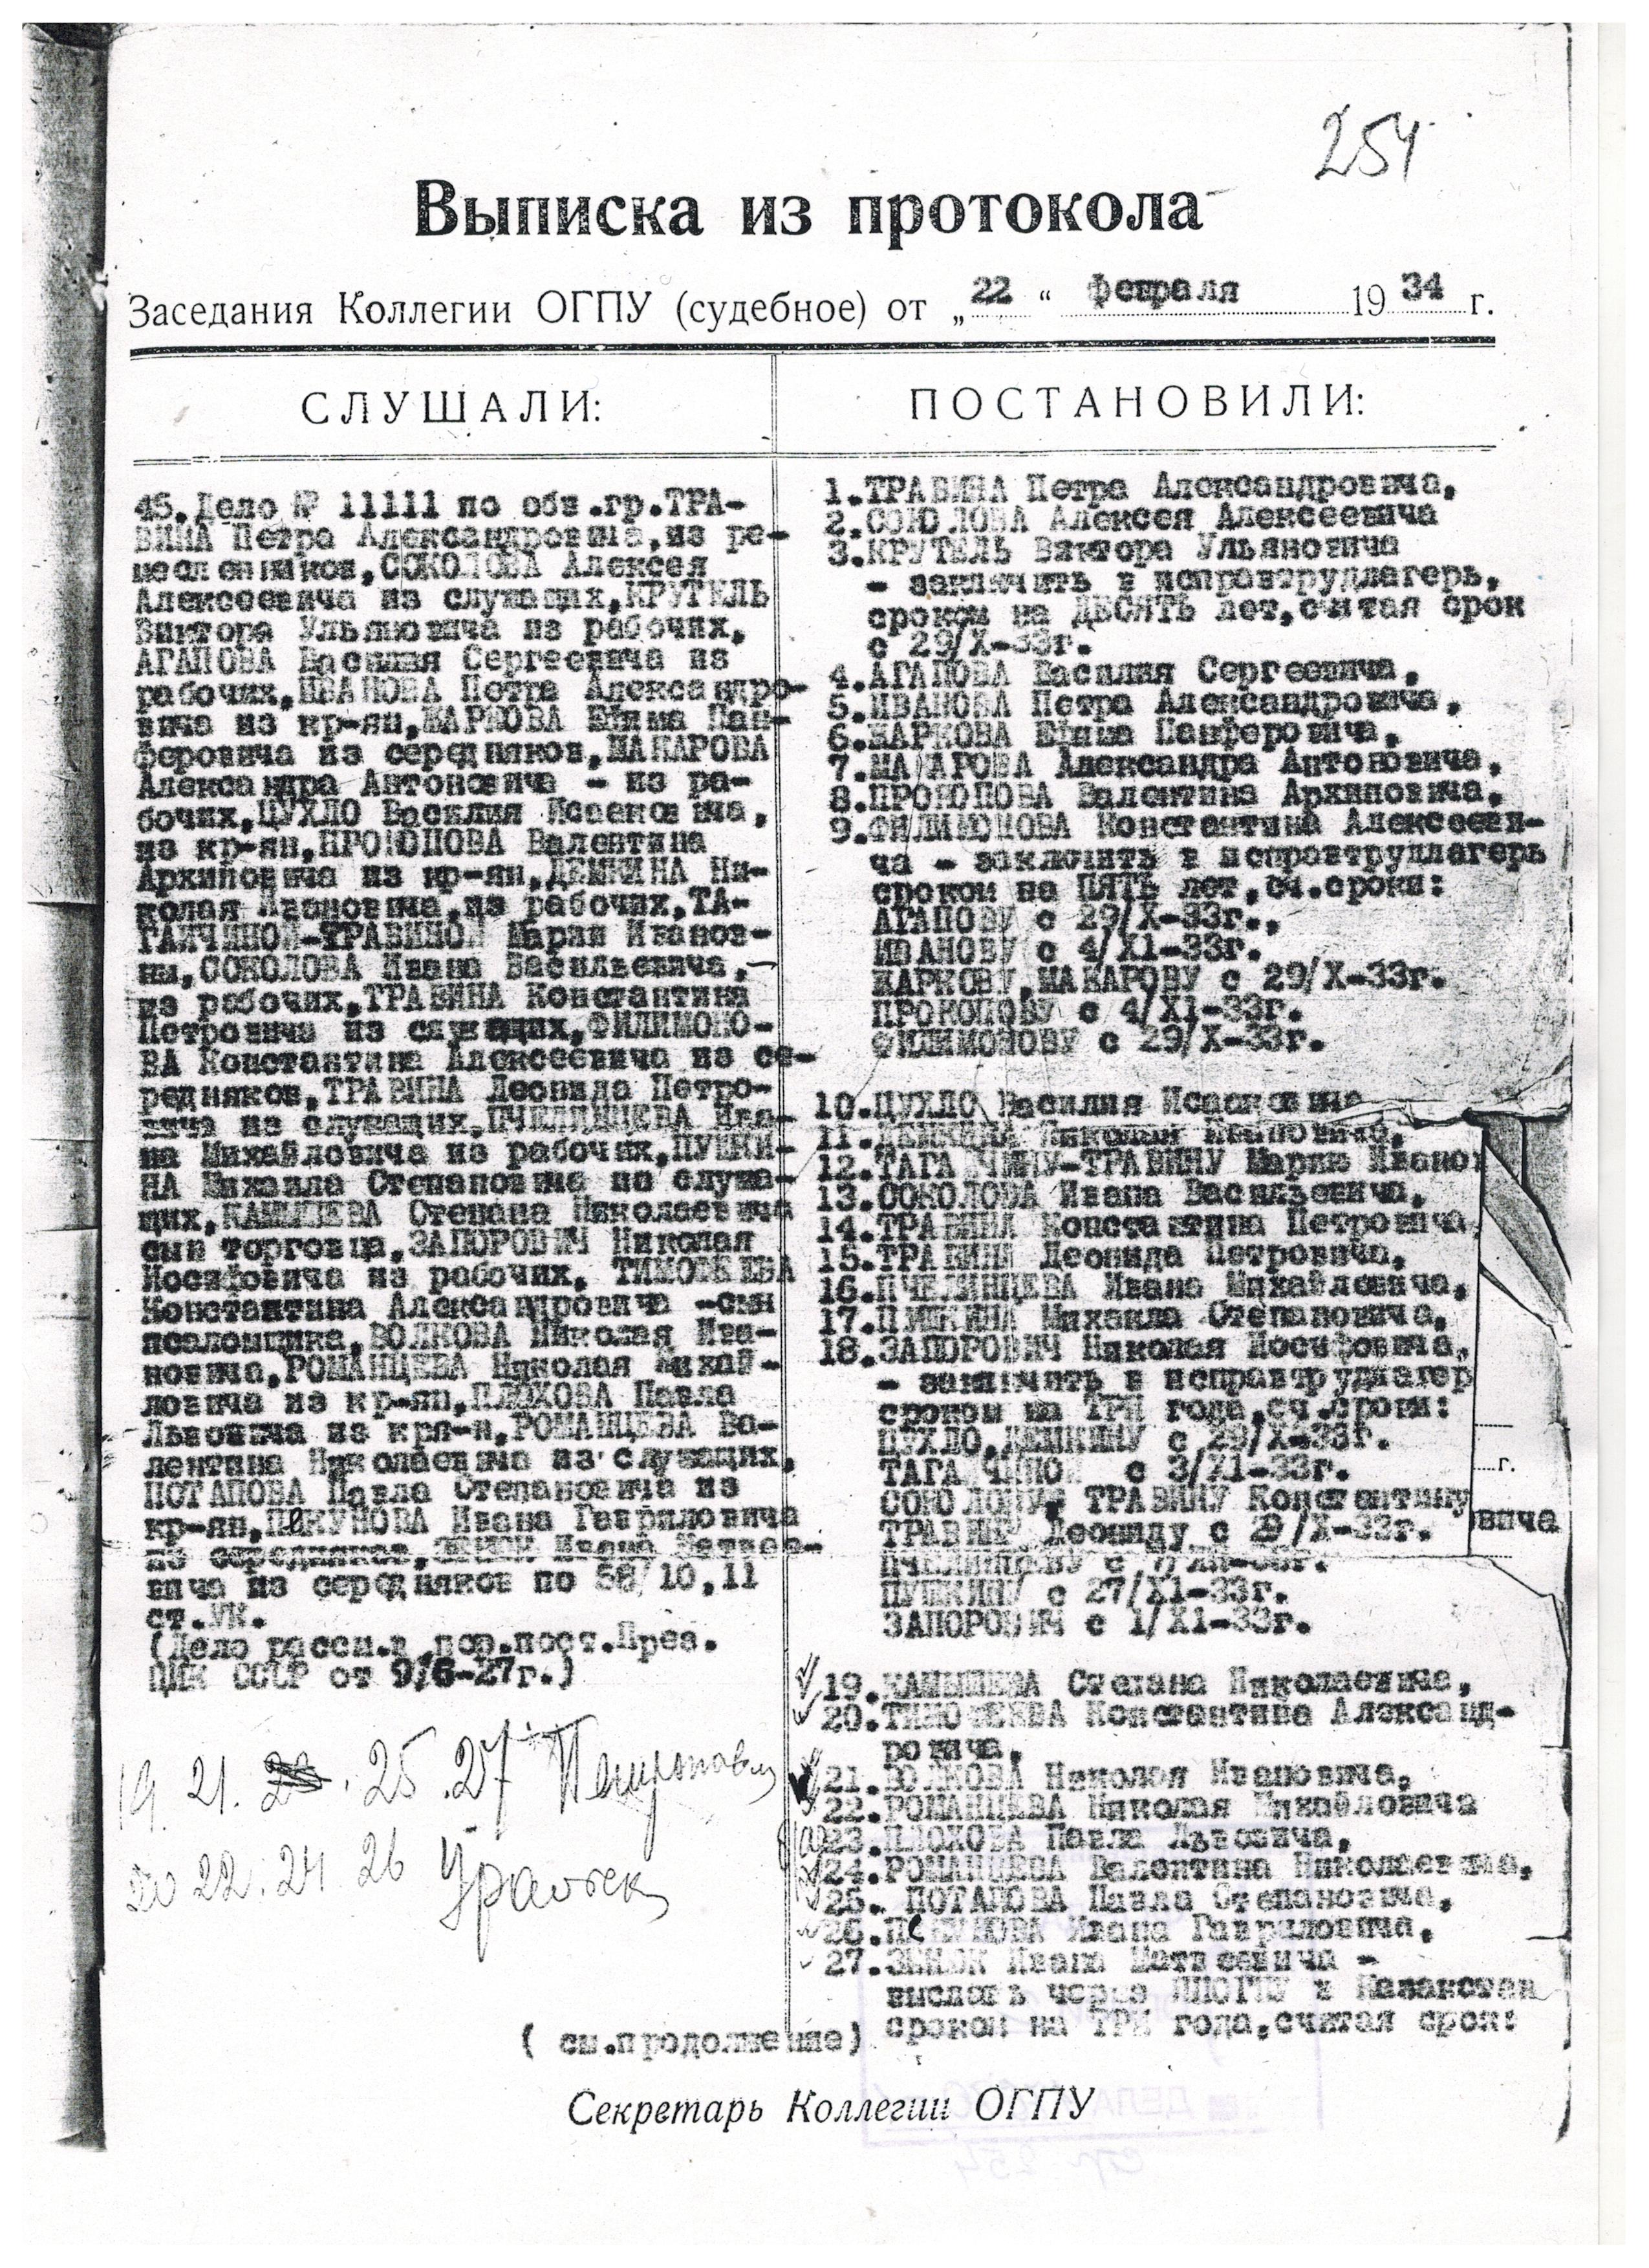 254
Выписка из протокола
Заседания Коллегии ОГПУ (судебное) от „22“ февраля 1934 г.
СЛУШАЛИ:
45.Дело № 11111 по обв.гр.ТРА-
ВИНА Петра Александровича,из ре-
месленников,СОКОЛОВА Алексея
Алексеевича из служащих,КРУТЕЛЬ
Виктора Ульяновича из рабочих,
АГАПОВА Василия Сергеевича из
рабочих,ИВАНОВА Петра Александро-
вича из кр-ян,ЖАРКОВА Ефима Пан-
феровича из середняков,МАКАРОВА
Александра Антоновича - из ра-
бочих,ЦУХЛО Василия Исааковича,
из кр-ян,ПРОКОПОВА Валентина
Архиповича из кр-ян,ДЕМКИНА Ни-
колая Ивановича,из рабочих,ТА-
ГАНЧИНОЙ-ТРАВИНОЙ Марии Иванов-
ны,СОКОЛОВА Ивана Васильевича,
из рабочих,ТРАВИНА Константина
Петровича из служащих,ФИЛИМОНО-
ВА Константина Алексеевича из се-
редняков,ТРАВИНА Леонида Петро-
вича из служащих,ПЧЕЛИНЦЕВА Ива-
на Михайловича из рабочих,ПУШКИ-
НА Михаила Степановича из служа-
щих,КАМЫШЕВА Степана Николаевича
сын торговца,ЗАПОРОВИЧ Николая
Иосифовича из рабочих, ТИМОФЕЕВА
Константина Александровича -сын
псаломщика,ВОЛКОВА Николая Ива-
новича,РОМАНЦЕВА Николая Михай-
ловича из кр-ян,ПЛОХОВА Павла
Львовича из кря-н,РОМАНЦЕВА Ва-
лентина Николаевича из служащих,
ПОТАПОВА Павла Степановича из
кр-ян,ПЕКУНОВА Ивана Гавриловича
из середняков, Ивана Матвее-
вича из середняков по 58/10,11
ст.УК.
(Дело рассм.в пор.пост.През.
ЦИК СССР от 9/6-27г.)
19. 21. 25. 27 Петропавл
20 22. 24. 26 Уральск
ПОСТАНОВИЛИ:
1.ТРАВИНА Петра Александровича,
2.СОКОЛОВА Алексея Алексеевича
3.КРУТЕЛЬ Виктора Ульяновича
- заключить в исправтрудлагерь,
сроком на ДЕСЯТЬ лет,считая срок
с 29/X-33г.
4.АГАПОВА Василия Сергеевича,
5.ИВАНОВА Петра Александровича,
6.ЖАРКОВА Ефима Панферовича,
7.МАКАРОВА Александра Антоновича,
8.ПРОКОПОВА Валентина Архиповича,
9.ФИЛИМОНОВА Константина Алексееви-
ча - заключить в исправтрудлагерь
сроком на ПЯТЬ лет,сч.сроки:
АГАПОВУ с 29/X-33г.,
ИВАНОВУ с 4/X1-33г.
ЖАРКОВУ,МАКАРОВУ с 29/X-33г.
ПРОКОПОВУ с 4/X1-33г.
ФИЛИМОНОВУ с 29/X-33г.
10.ЦУХЛО Василия Исааковича
11.ДЕМКИНА Николая Ивановича,
12.ТАГАНЧИНУ-ТРАВИНУ Марию Ивано
13.СОКОЛОВА Ивана Васильевича,
14.ТРАВИНА Константина Петровича,
15.ТРАВИНА Леонида Петровича,
16.ПЧЕЛИНЦЕВА Ивана Михайловича,
17.ПУШКИНА Михаила Степановича,
18.ЗАПОРОВИЧ Николая Иосифовича,
- заключить в исправтрудлагер
сроком на ТРИ года,сч.сроки:
ЦУХЛО,ДЕМКИНУ с 29/X-33г.
ТАГАНЧИНОЙ с 3/X1-33г.
СОКОЛОВУ, ТРАВИНУ Константину
ТРАВИНУ Леониду с 29/X-33г.
ПЧЕЛИНЦЕВУ с
ПУШКИНУ с 27/X1-33г.
ЗАПОРОВИЧ с 1/X1-33г.
г.
вича
19.КАМЫШЕВА Степана Николаевича,
20.ТИМОФЕЕВА Константина Александ-
ровича,
21.ВОЛКОВА Николая Ивановича,
22.РОМАНЦЕВА Николая Михайловича
23.ПЛОХОВА Павла Львовича,
24.РОМАНЦЕВА Валентина Николаевича,
25. ПОТАПОВА Павла Степановича,
26.ПЕКУНОВА Ивана Гавриловича,
27. Ивана Матвеевича -
выслать через ПП ОГПУ в Казакстан
сроком на ТРИ года,считая срок:
( см.продолжение)
Секретарь Коллегии ОГПУ